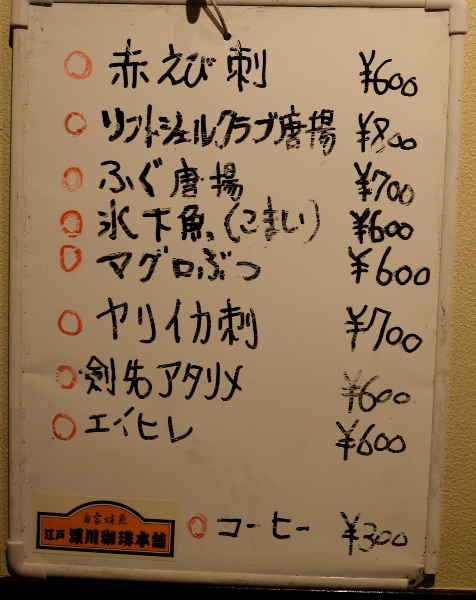 赤えび刺 ¥600
ソフトシェルクラブ唐揚 ¥800
ふぐ唐揚 ¥700
氷下魚(こまい) ¥600
マグロぶつ ¥600
ヤリイカ刺 ¥700
剣先アタリメ ¥600
エイヒレ ¥600
コーヒー ¥300
自家焙煎
江戸 深川珈琲本舗